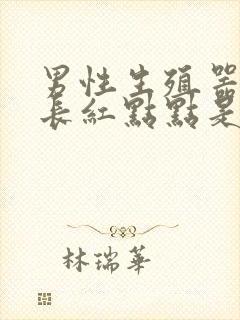 男性生殖器
長紅點點是
林瑞華